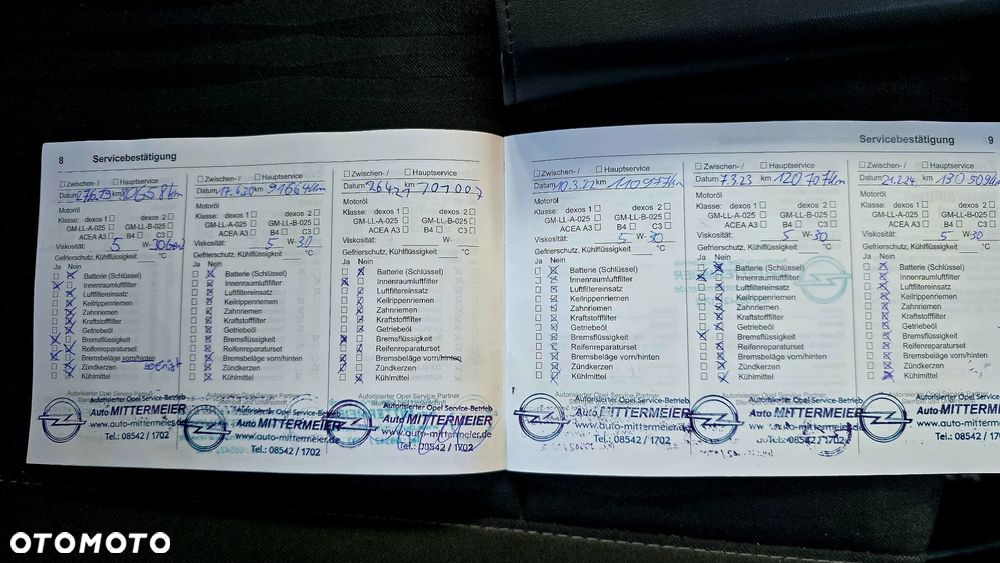 8 Servicebestätigung
Zwischen-/ Hauptservice
Datum 27.6.19 km 80658km
Motoröl
Klasse: dexos 1 dexos 2
GM-LL-A-025 GM-LL-B-025
ACEA A3 B4 C3
Viskosität: 5 W- 30
Gefrierschutz, Kühlflüssigkeit °C
Ja Nein
Batterie (Schlüssel)
Innenraumluftfilter
Luftfiltereinsatz
Keilrippenriemen
Zahnriemen
Kraftstofffilter
Getriebeöl
Bremsflüssigkeit
Reifenreparaturset
Bremsbeläge vorn/hinten
Zündkerzen
Kühlmittel
Autorisierter Opel Service-Betrieb
Auto MITTERMEIER
www.auto-mittermeier.de
Tel.: 08542 / 1702
Zwischen-/ Hauptservice
Datum 17.6.20 km 91664km
Motoröl
Klasse: dexos 1 dexos 2
GM-LL-A-025 GM-LL-B-025
ACEA A3 B4 C3
Viskosität: 5 W- 30
Gefrierschutz, Kühlflüssigkeit °C
Ja Nein
Batterie (Schlüssel)
Innenraumluftfilter
Luftfiltereinsatz
Keilrippenriemen
Zahnriemen
Kraftstofffilter
Getriebeöl
Bremsflüssigkeit
Reifenreparaturset
Bremsbeläge vorn/hinten
Zündkerzen
Kühlmittel
Autorisierter Opel Service-Betrieb
Auto MITTERMEIER
www.auto-mittermeier.de
Tel.: 08542 / 1702
Zwischen-/ Hauptservice
Datum km
Motoröl
Klasse: dexos 1 dexos 2
GM-LL-A-025 GM-LL-B-025
ACEA A3 B4 C3
Viskosität: W-
Gefrierschutz, Kühlflüssigkeit °C
Ja Nein
Batterie (Schlüssel)
Innenraumluftfilter
Luftfiltereinsatz
Keilrippenriemen
Zahnriemen
Kraftstofffilter
Getriebeöl
Bremsflüssigkeit
Reifenreparaturset
Bremsbeläge vorn/hinten
Zündkerzen
Kühlmittel
Autorisierter Opel Service-Betrieb
Auto MITTERMEIER
www.auto-mittermeier.de
Tel.: 08542 / 1702
Servicebestätigung 9
Zwischen-/ Hauptservice
Datum 10.3.22 km
Motoröl
Klasse: dexos 1 dexos 2
GM-LL-A-025 GM-LL-B-025
ACEA A3 B4 C3
Viskosität: 5 W- 30
Gefrierschutz, Kühlflüssigkeit °C
Ja Nein
Batterie (Schlüssel)
Innenraumluftfilter
Luftfiltereinsatz
Keilrippenriemen
Zahnriemen
Kraftstofffilter
Getriebeöl
Bremsflüssigkeit
Reifenreparaturset
Bremsbeläge vorn/hinten
Zündkerzen
Kühlmittel
Autorisierter Opel Service-Betrieb
Auto MITTERMEIER
www.auto-mittermeier.de
Tel.: 08542 / 1702
Zwischen-/ Hauptservice
Datum 7.3.23 km 120707km
Motoröl
Klasse: dexos 1 dexos 2
GM-LL-A-025 GM-LL-B-025
ACEA A3 B4 C3
Viskosität: 5 W- 30
Gefrierschutz, Kühlflüssigkeit °C
Ja Nein
Batterie (Schlüssel)
Innenraumluftfilter
Luftfiltereinsatz
Keilrippenriemen
Zahnriemen
Kraftstofffilter
Getriebeöl
Bremsflüssigkeit
Reifenreparaturset
Bremsbeläge vorn/hinten
Zündkerzen
Kühlmittel
Autorisierter Opel Service-Betrieb
Auto MITTERMEIER
www.auto-mittermeier.de
Tel.: 08542 / 1702
Zwischen-/ Hauptservice
Datum 21.2.24 km 130509km
Motoröl
Klasse: dexos 1 dexos 2
GM-LL-A-025 GM-LL-B-025
ACEA A3 B4 C3
Viskosität: 5 W- 30
Gefrierschutz, Kühlflüssigkeit °C
Ja Nein
Batterie (Schlüssel)
Innenraumluftfilter
Luftfiltereinsatz
Keilrippenriemen
Zahnriemen
Kraftstofffilter
Getriebeöl
Bremsflüssigkeit
Reifenreparaturset
Bremsbeläge vorn/hinten
Zündkerzen
Kühlmittel
Autorisierter Opel
Auto MITTERMEIER
www.auto-mittermeier.de
Tel.: 08542 / 1702
OTOMOTO